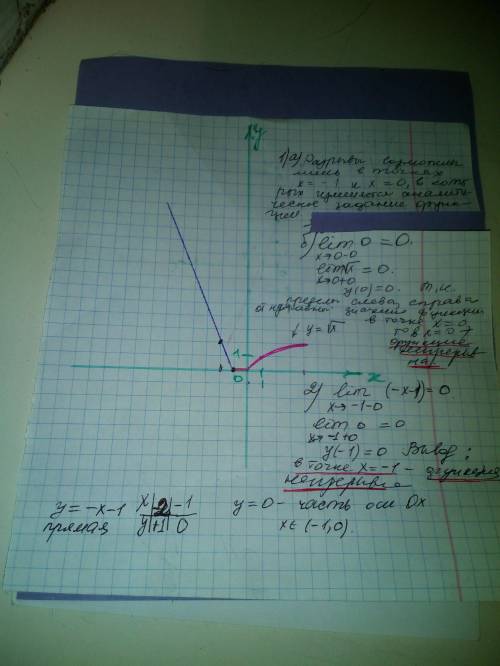 y
1) а) Разрывы возможны
лишь в точках
x = -1 и x = 0, в кото
рых изменяется аналити
ческое задание функ
ции.
б) lim 0 = 0.
x→0-0
lim √x = 0.
x→0+0
y(0) = 0. т.к.
пределы слева, справа
и значения функции
в точке x = 0
то в x = 0
функция
непрерыв
на.
y = √x
1
0 1 x
2) lim (-x-1) = 0
x→-1-0
lim 0 = 0
x→-1+0
y(-1) = 0 Вывод:
в точке x = -1 - функция
непрерывн.
y = -x-1 x -2 -1
прямая y +1 0
y = 0 - часть оси Ox
x ∈ (-1, 0).